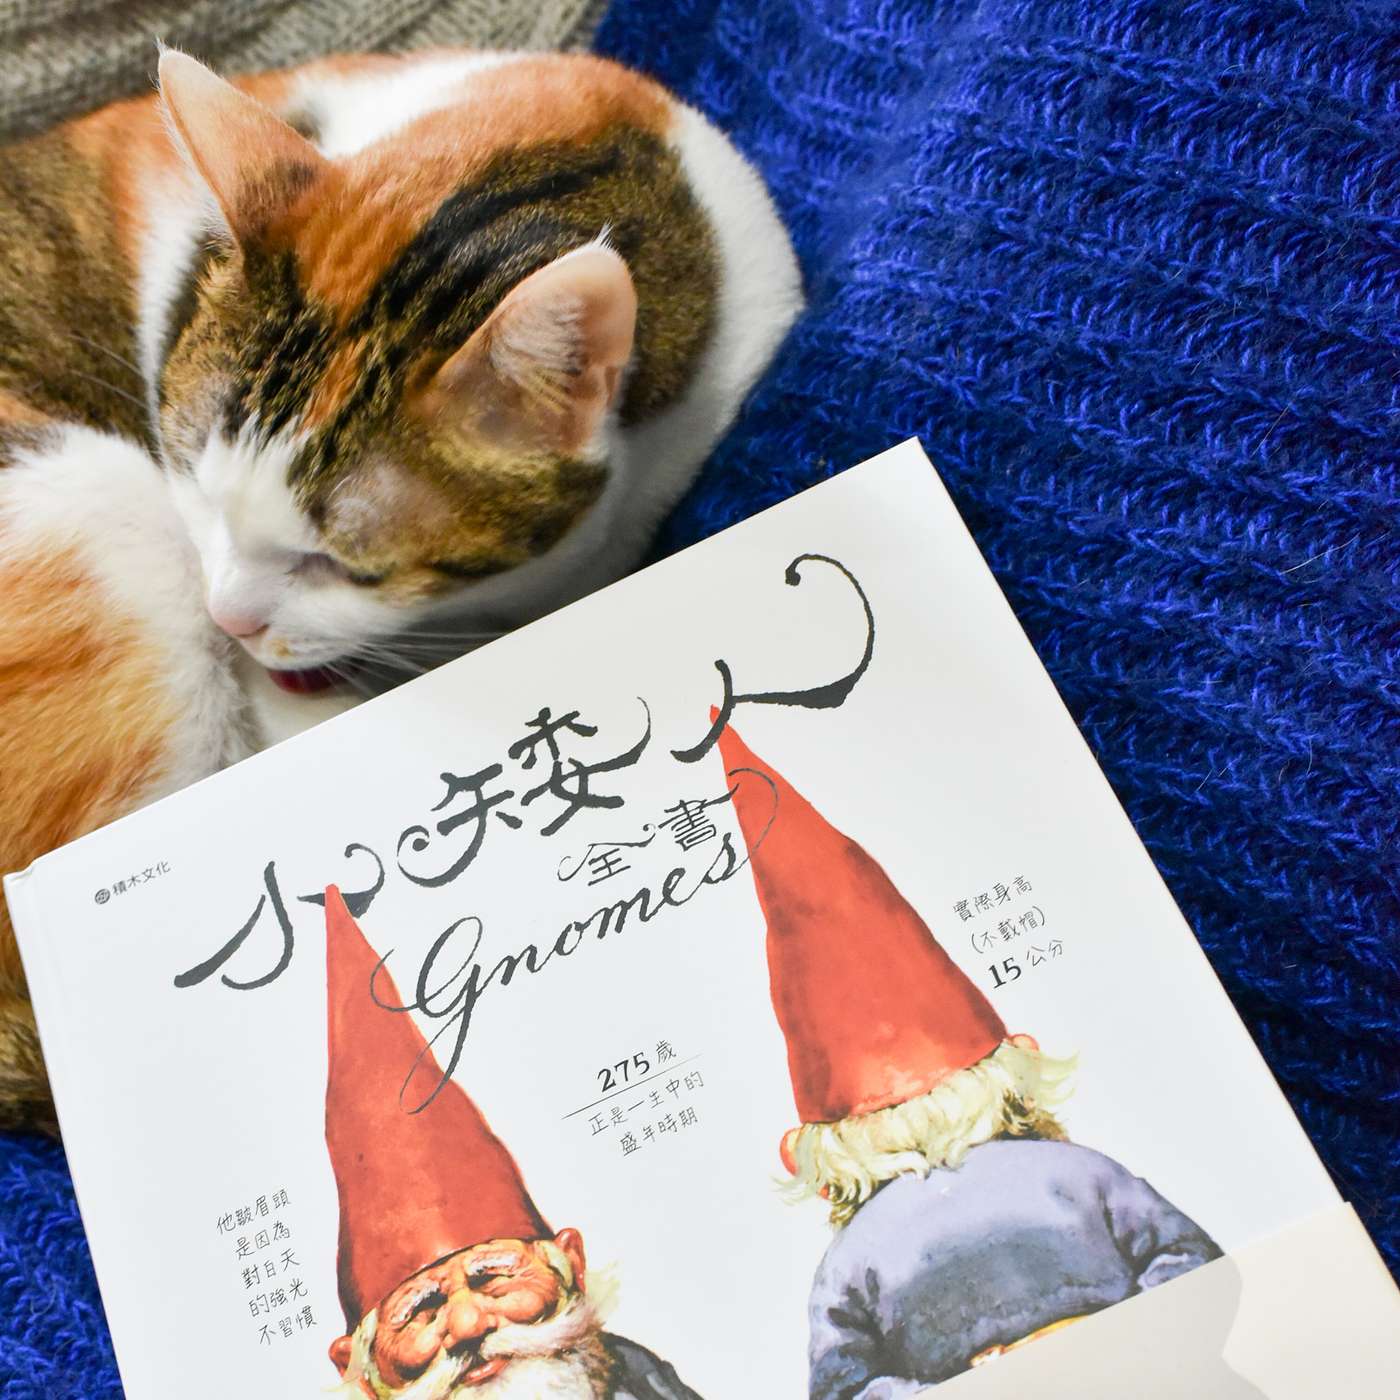 積木文化
小矮人
全書
Gnomes
實際身高
(不戴帽)
15公分
275歲
正是一生中的
盛年時期
他皺眉頭
是因為
對白天
的強光
不習慣